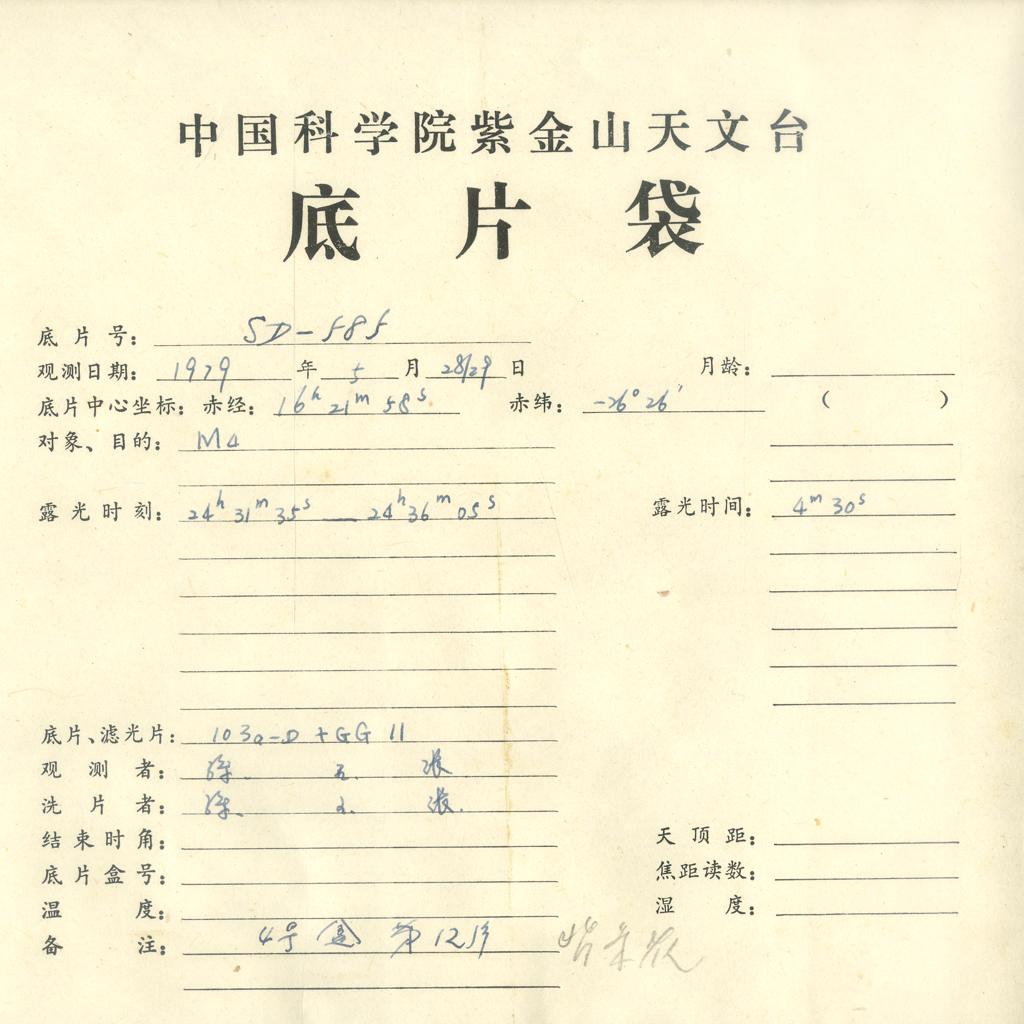 中国科学院紫金山天文台
底片袋
底片号: SD-585
观测日期: 1979 年 5 月 28/29 日 月龄:
底片中心坐标: 赤经: 16h 21m 58s 赤纬: -26° 26′ ( )
对象、目的: M4
露光时刻: 24h 31m 35s — 24h 36m 05s 露光时间: 4m 30s
底片、滤光片: 103a-D + GG 11
观测者: 张
洗片者: 张.
结束时角: 天顶距:
底片盒号: 焦距读数:
温度: 湿度:
备注: 4号盒 第12片